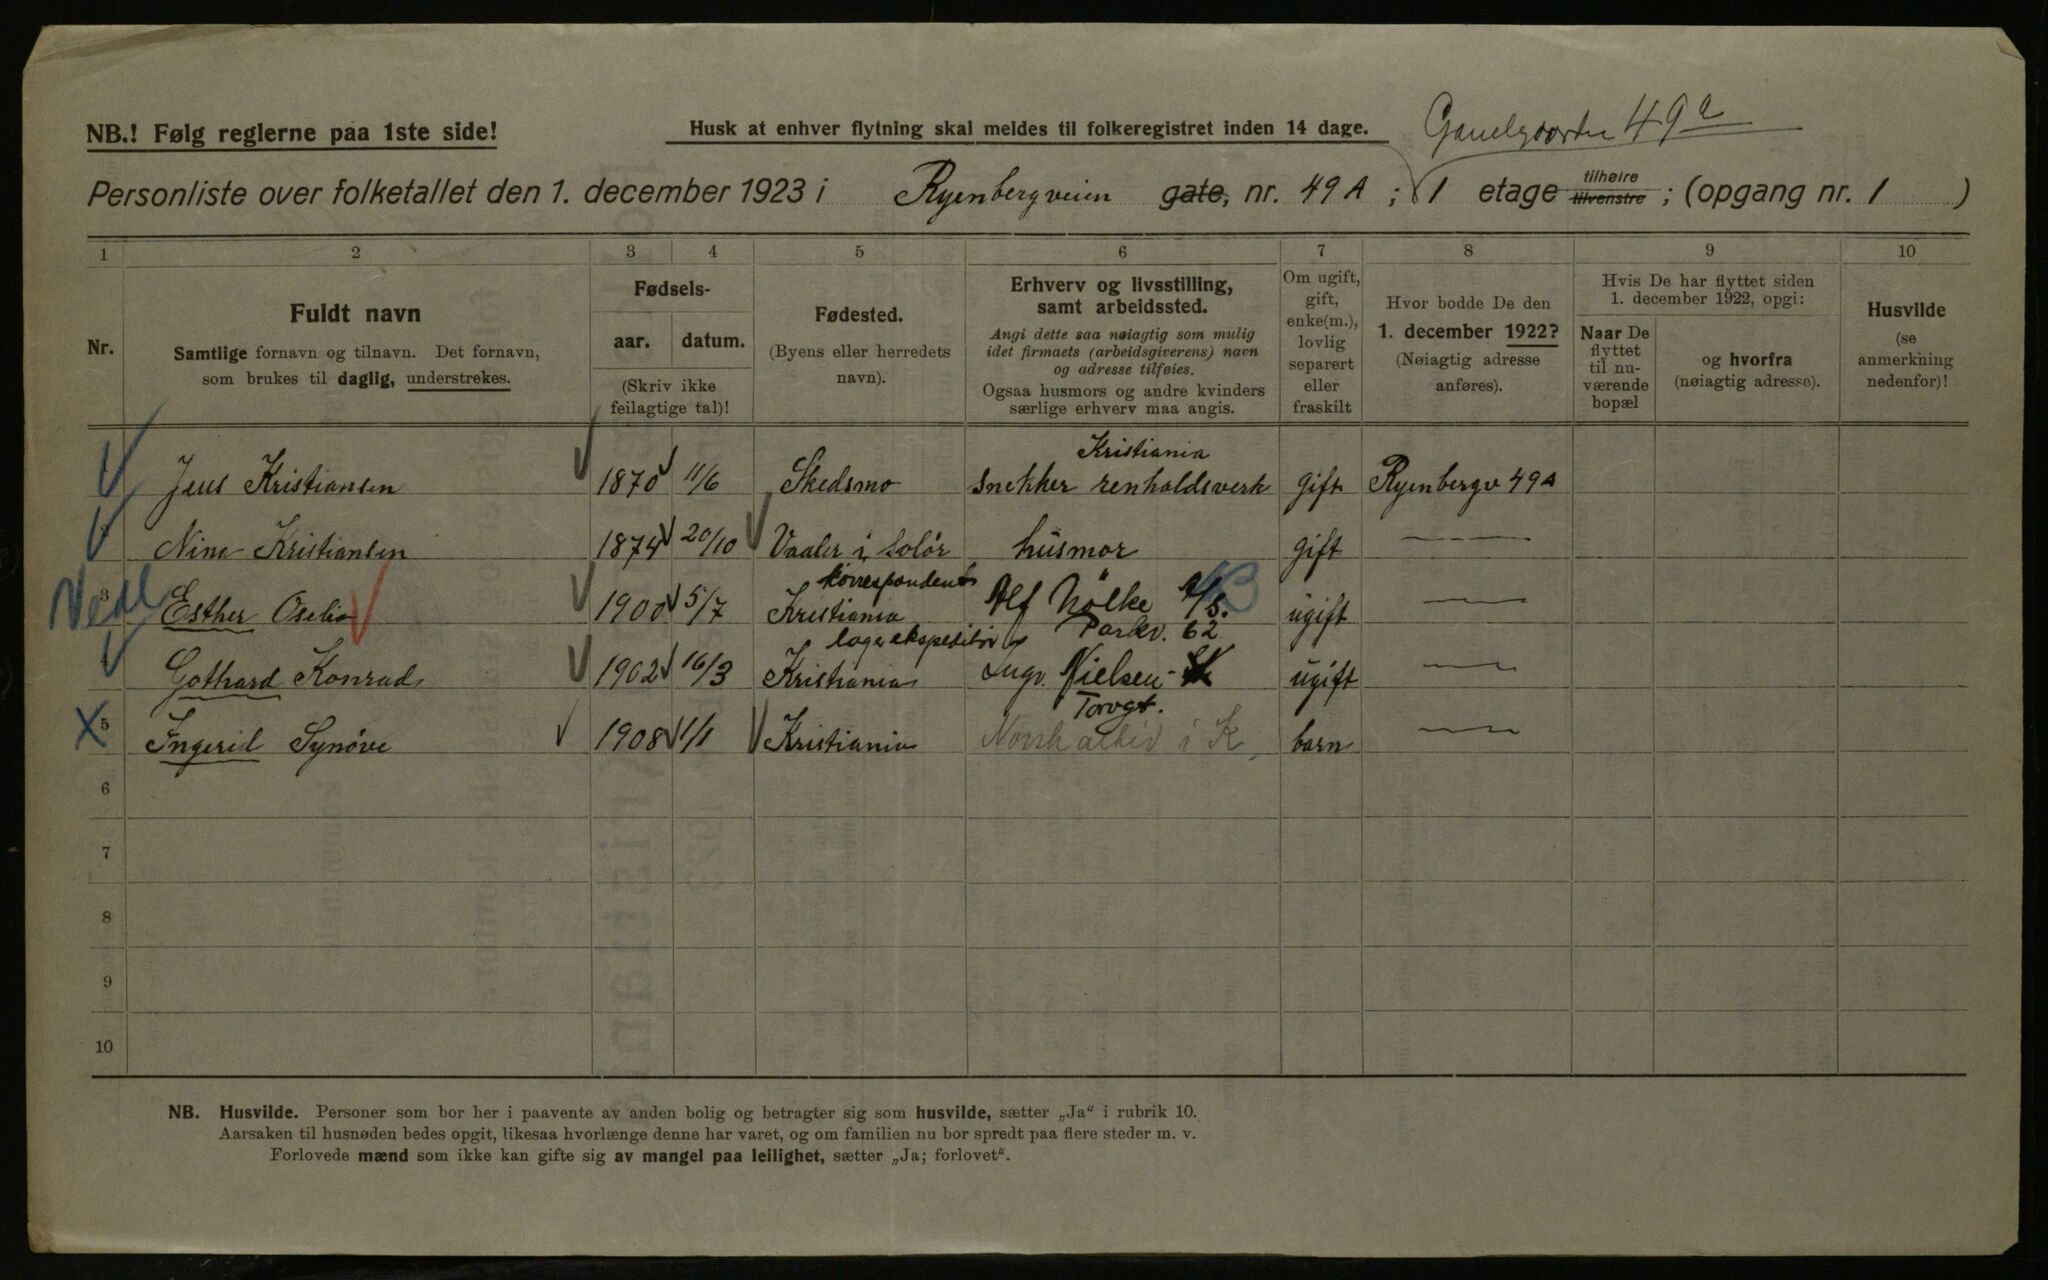 NB.! Følg reglerne paa 1ste side!
Husk at enhver flytning skal meldes til folkeregistret inden 14 dage.
49a
Personliste over folketallet den 1. december 1923 i Ryenbergveien gate, nr. 49A; 1 etage tilhøire tilvenstre; (opgang nr. 1)
1 2 3 4 5 6 7 8 9 10
Nr.
Fuldt navn
Samtlige fornavn og tilnavn. Det fornavn,
som brukes til daglig, understrekes.
Fødsels-
aar. datum.
(Skriv ikke
feilagtige tal)!
Fødested.
(Byens eller herredets
navn).
Erhverv og livsstilling,
samt arbeidssted.
Angi dette saa nøiagtig som mulig
idet firmaets (arbeidsgiverens) navn
og adresse tilføies.
Ogsaa husmors og andre kvinders
særlige erhverv maa angis.
Om ugift,
gift,
enke(m.),
lovlig
separert
eller
fraskilt
Hvor bodde De den
1. december 1922?
(Nøiagtig adresse
anføres).
Hvis De har flyttet siden
1. december 1922, opgi:
Naar De
flyttet
til nu-
værende
bopæl
og hvorfra
(nøiagtig adresse).
Husvilde
(se
anmerkning
nedenfor)!
Kristiania
Jens Kristiansen 1870 11/6 Skedsmo Snekker renholdsverk gift Ryenbergv 49A
Nina Kristiansen 1874 20/10 Vaaler i Solör husmor gift
korrespondent
3 Esther Oselia 1900 5/7 Kristiania Alf Nölke A/S. ugift
Parkv. 62
lagerekspeditör
Gothard Konrad 1902 16/3 Kristiania Ingv. Nielsen ugift
Torvgt.
5 Ingerid Synöve 1908 1/1 Kristiania Norsk arbeid i K barn
6
7
8
9
10
NB. Husvilde. Personer som bor her i paavente av anden bolig og betragter sig som husvilde, sætter „Ja“ i rubrik 10.
Aarsaken til husnøden bedes opgit, likesaa hvorlænge denne har varet, og om familien nu bor spredt paa flere steder m. v.
Forlovede mænd som ikke kan gifte sig av mangel paa leilighet, sætter „Ja; forlovet“.